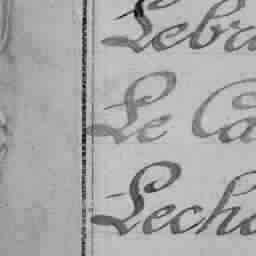 Lebra
Le Ca
Lecho